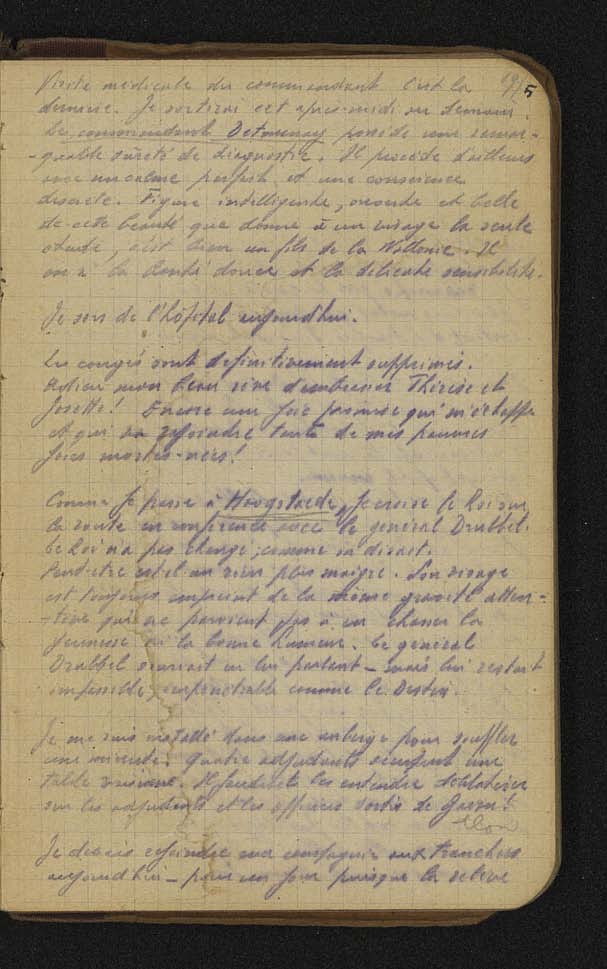 Visite médicale du commandant. C'est la 19/5
dernière. Je sortirai cet après-midi ou demain.
Le commandant Detournay possède une remar-
-quable sûreté de diagnostic. Il procède d'ailleurs
avec un calme parfait et une conscience
discrète. Figure intelligente, et belle
de cette beauté que donne à un visage la seule
, c'est bien un fils de la Wallonie. Il
en a la bonté douce et la délicate sensibilité.
Je sors de l'hôpital aujourd'hui.
Les congés sont définitivement supprimés.
Adieu mon beau rêve d'embrasser Thérèse et
Josette! Encore une joie promise qui m'échappe
et qui va rejoindre toutes mes pauvres
joies mortes-nées!
Comme je passe à Hoogstaede, je croise le Roi sur
la route en conférence avec le général Drubbel.
Le Roi n'a pas changé, comme on disait.
Peut-être est-il un rien plus maigre. Son visage
est toujours empreint de la même gravité atten-
-tive qui ne parvient pas à en chasser la
jeunesse ni la bonne humeur. Le général
Drubbel souriait en lui parlant — mais lui restait
impassible, impénétrable comme le Destin.
Je me suis installé dans une auberge pour souffler
une minute. Quatre adjudants occupent une
table voisine. Il faudrait les entendre
sur les adjudants et les officiers sortis de !
Je devais rejoindre ma compagnie aux tranchées
aujourd'hui — pour un jour puisque la relève